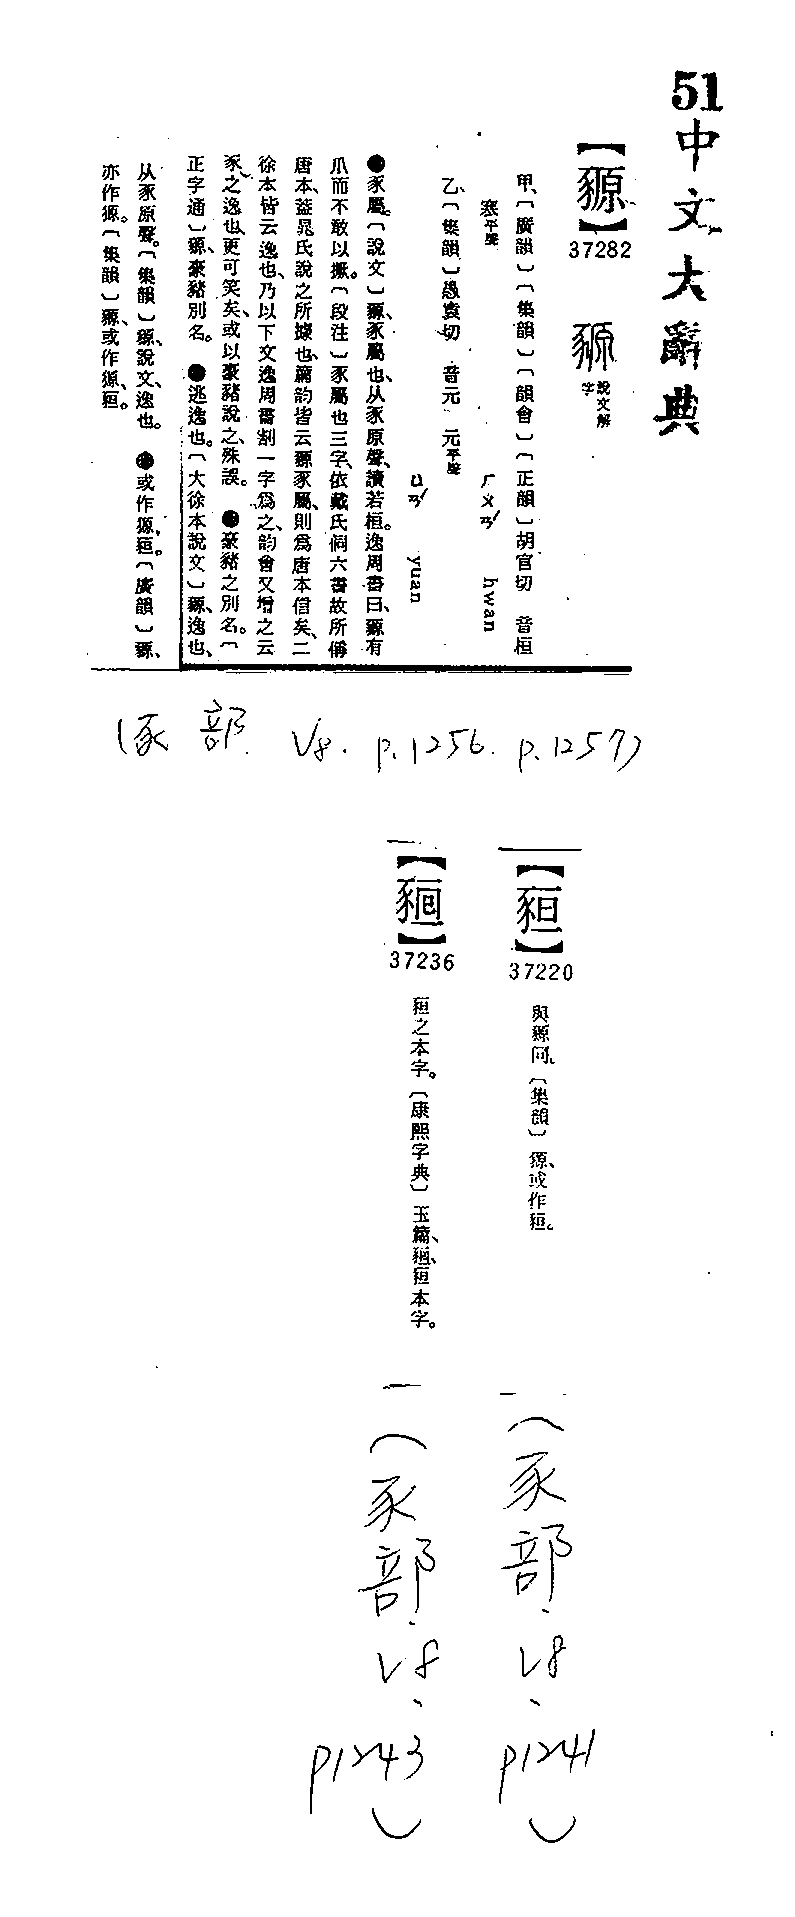 51中文大辭典
【豲】
37282
說文解字
甲、〔廣韻〕〔集韻〕〔韻會〕〔正韻〕胡官切 音桓
寒平聲 ㄏㄨㄢˊ hwan
乙、〔集韻〕愚袁切 音元 元平聲
ㄩㄢˊ yuan
●豕屬。〔說文〕豲、豕屬也、从豕原聲、讀若桓。逸周書曰、豲有
爪而不敢以撅。〔段注〕豕屬也三字、依戴氏侗六書故所偁
唐本、蓋晁氏說之所據也、篇韵皆云豲豕屬、則爲唐本信矣、二
徐本皆云逸也、乃以下文逸周書割一字爲之、韵會又增之云
豕之逸也、更可笑矣、或以豪豬說之、殊誤。●豪豬之別名。〔
正字通〕豲、豪豬別名。●逃逸也。〔大徐本說文〕豲、逸也、
从豕原聲。〔集韻〕豲、說文、逸也。●或作獂、狟。〔廣韻〕豲、
亦作獂。〔集韻〕豲、或作獂、狟。
(豕部 V8. p.1256. p.1257)
【豠】
37220
與豲同。〔集韻〕豲、或作狟。
(豕部.V8、p1241)
37236
狟之本字。〔康熙字典〕玉篇、
本字。
(豕部.V8、p1243)